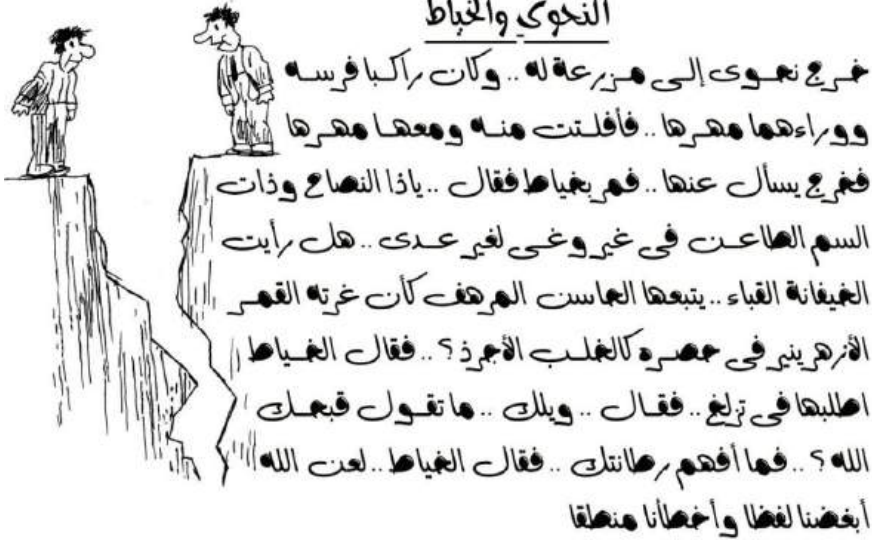 النحوي والخياط
خرج نحوى إلى مزرعة له .. وكان راكبا فرسه
ووراءهما مهرها .. فأفلتت منه ومعها مهرها
فخرج يسأل عنها .. فمر بخياط فقال .. ياذا النصاح وذات
السم الطاعن فى غير وغى لغير عدى .. هل رأيت
الخيفانة القباء .. يتبعها الحاسن المرهف كأن غرته القمر
الأزهر ينير فى حصره كالخلب الأجرذ ؟ .. فقال الخياط
اطلبها فى تزلخ .. فقال .. ويلك .. ما تقول قبحك
الله ؟ .. فما أفهم رطانتك .. فقال الخياط .. لعن الله
أبغضنا لفظا وأخطأنا منطقا